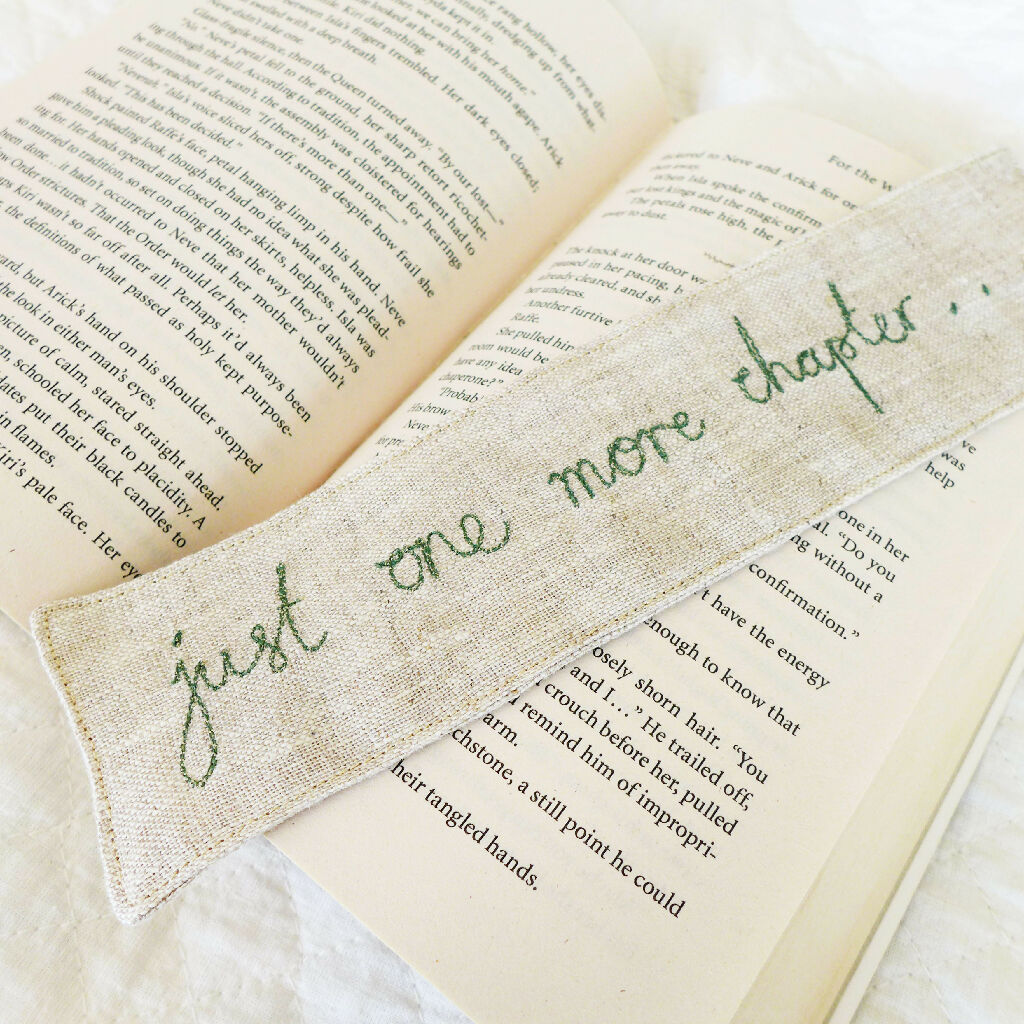 just one more chapter..
ring hollow, her eyes dis-
nally, dredging up from what-
yda kept it in.
her, we can bring her home."
e looked at her with his mouth agape. Arick
hile. Kiri did nothing.
between Isla's fingers trembled. Her dark eyes closed;
st swelled with a deep breath.
Neve didn't take one.
Glass-fragile silence, then the Queen turned away. "By our lost—"
"No." Neve's petal fell to the ground, her sharp retort ricochet-
ing through the hall. According to tradition, the appointment had to
be unanimous. If it wasn't, the assembly was cloistered for hearings
until they reached a decision. "If there's more than one—"
"Nevenah." Isla's voice sliced hers off, strong despite how frail she
looked. "This has been decided."
Shock painted Raffe's face, petal hanging limp in his hand. Neve
gave him a pleading look, though she had no idea what she was plead-
ing for. Her hands opened and closed on her skirts, helpless. Isla was
so married to tradition, so set on doing things the way they'd always
been done... it hadn't occurred to Neve that her mother wouldn't
w Order strictures. That the Order would let her.
ps Kiri wasn't so far off after all. Perhaps it'd always been
the definitions of what passed as holy kept purpose-
ard, but Arick's hand on his shoulder stopped
the look in either man's eyes.
picture of calm, stared straight ahead.
en, schooled her face to placidity. A
lates put their black candles to
in flames.
Kiri's pale face. Her eye
For the W
ickered to Neve and Arick for
When Isla spoke the confirm
our lost kings and the magic of
The petals rose high, the
away to dust.
The knock at her door wa
paused in her pacing, b
already cleared, and sh
her undress.
Another furtive
Raffe.
She pulled hi
room would be
have any idea
chaperone?"
"Probab
His brow
Neve
for pr
ve
was
help
one in her
al. "Do you
ng without a
confirmation."
t have the energy
enough to know that
osely shorn hair. "You
and I..." He trailed off,
crouch before her, pulled
remind him of impropri-
arm.
chstone, a still point he could
heir tangled hands.